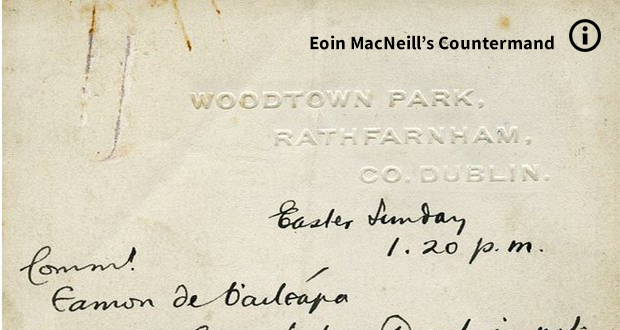 Eoin MacNeill’s Countermand
WOODTOWN PARK,
RATHFARNHAM,
CO. DUBLIN.
Easter Sunday
1.20 p.m.
Commt
Eamon de